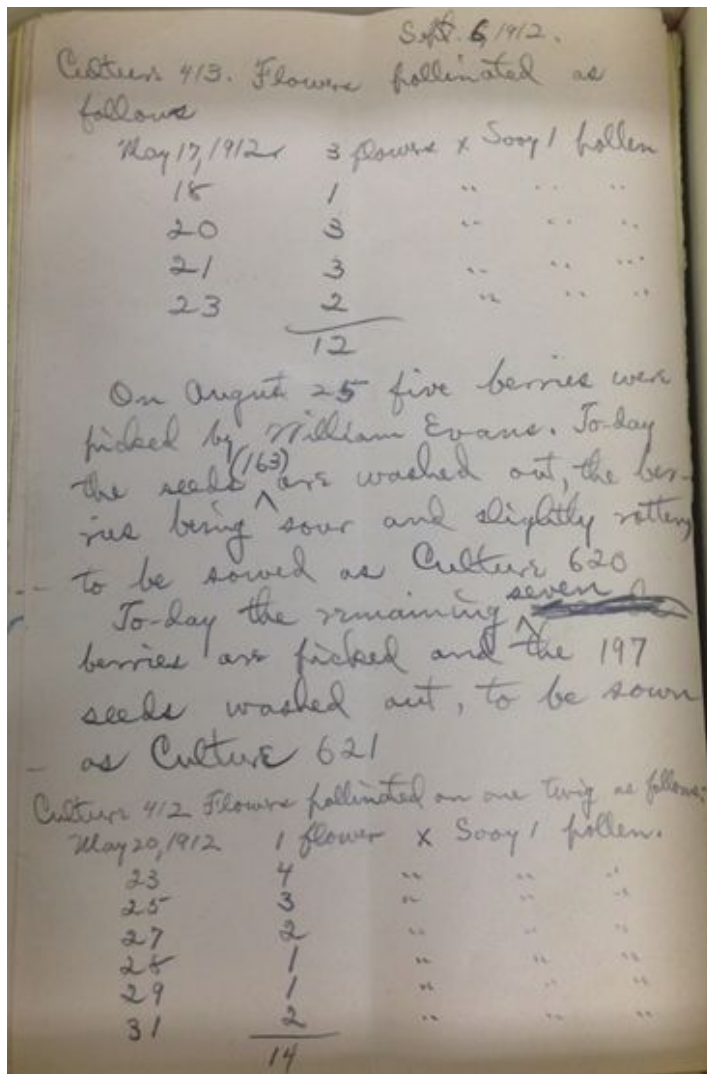 Sept. 6, 1912.
Culture 413. Flowers pollinated as
follows
May 17, 1912 3 flowers x Sooy 1 pollen
18 1 " " "
20 3 " " "
21 3 " " "
23 2 " " "
12
On August 25 five berries were
picked by William Evans. To-day
the seeds (163) are washed out, the ber-
ries being sour and slightly rotten,
to be sowed as Culture 620
To-day the remaining seven
berries are picked and the 197
seeds washed out, to be sown
as Culture 621
Culture 412 Flowers pollinated on one twig as follows:
May 20, 1912 1 flower x Sooy 1 pollen.
23 4 " " "
25 3 " " "
27 2 " " "
28 1 " " "
29 1 " " "
31 2 " " "
14